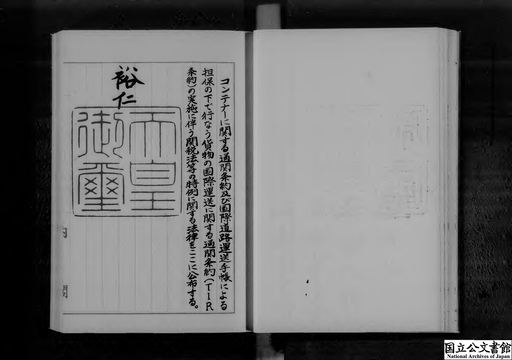 コンテナーに関する通関条約及び国際道路運送手帳による
担保の下で行なう貨物の国際運送に関する通関条約(TIR
条約)の実施に伴う関税法等の特例に関する法律をここに公布する。
裕仁
天皇
御璽
国立公文書館
National Archives of Japan